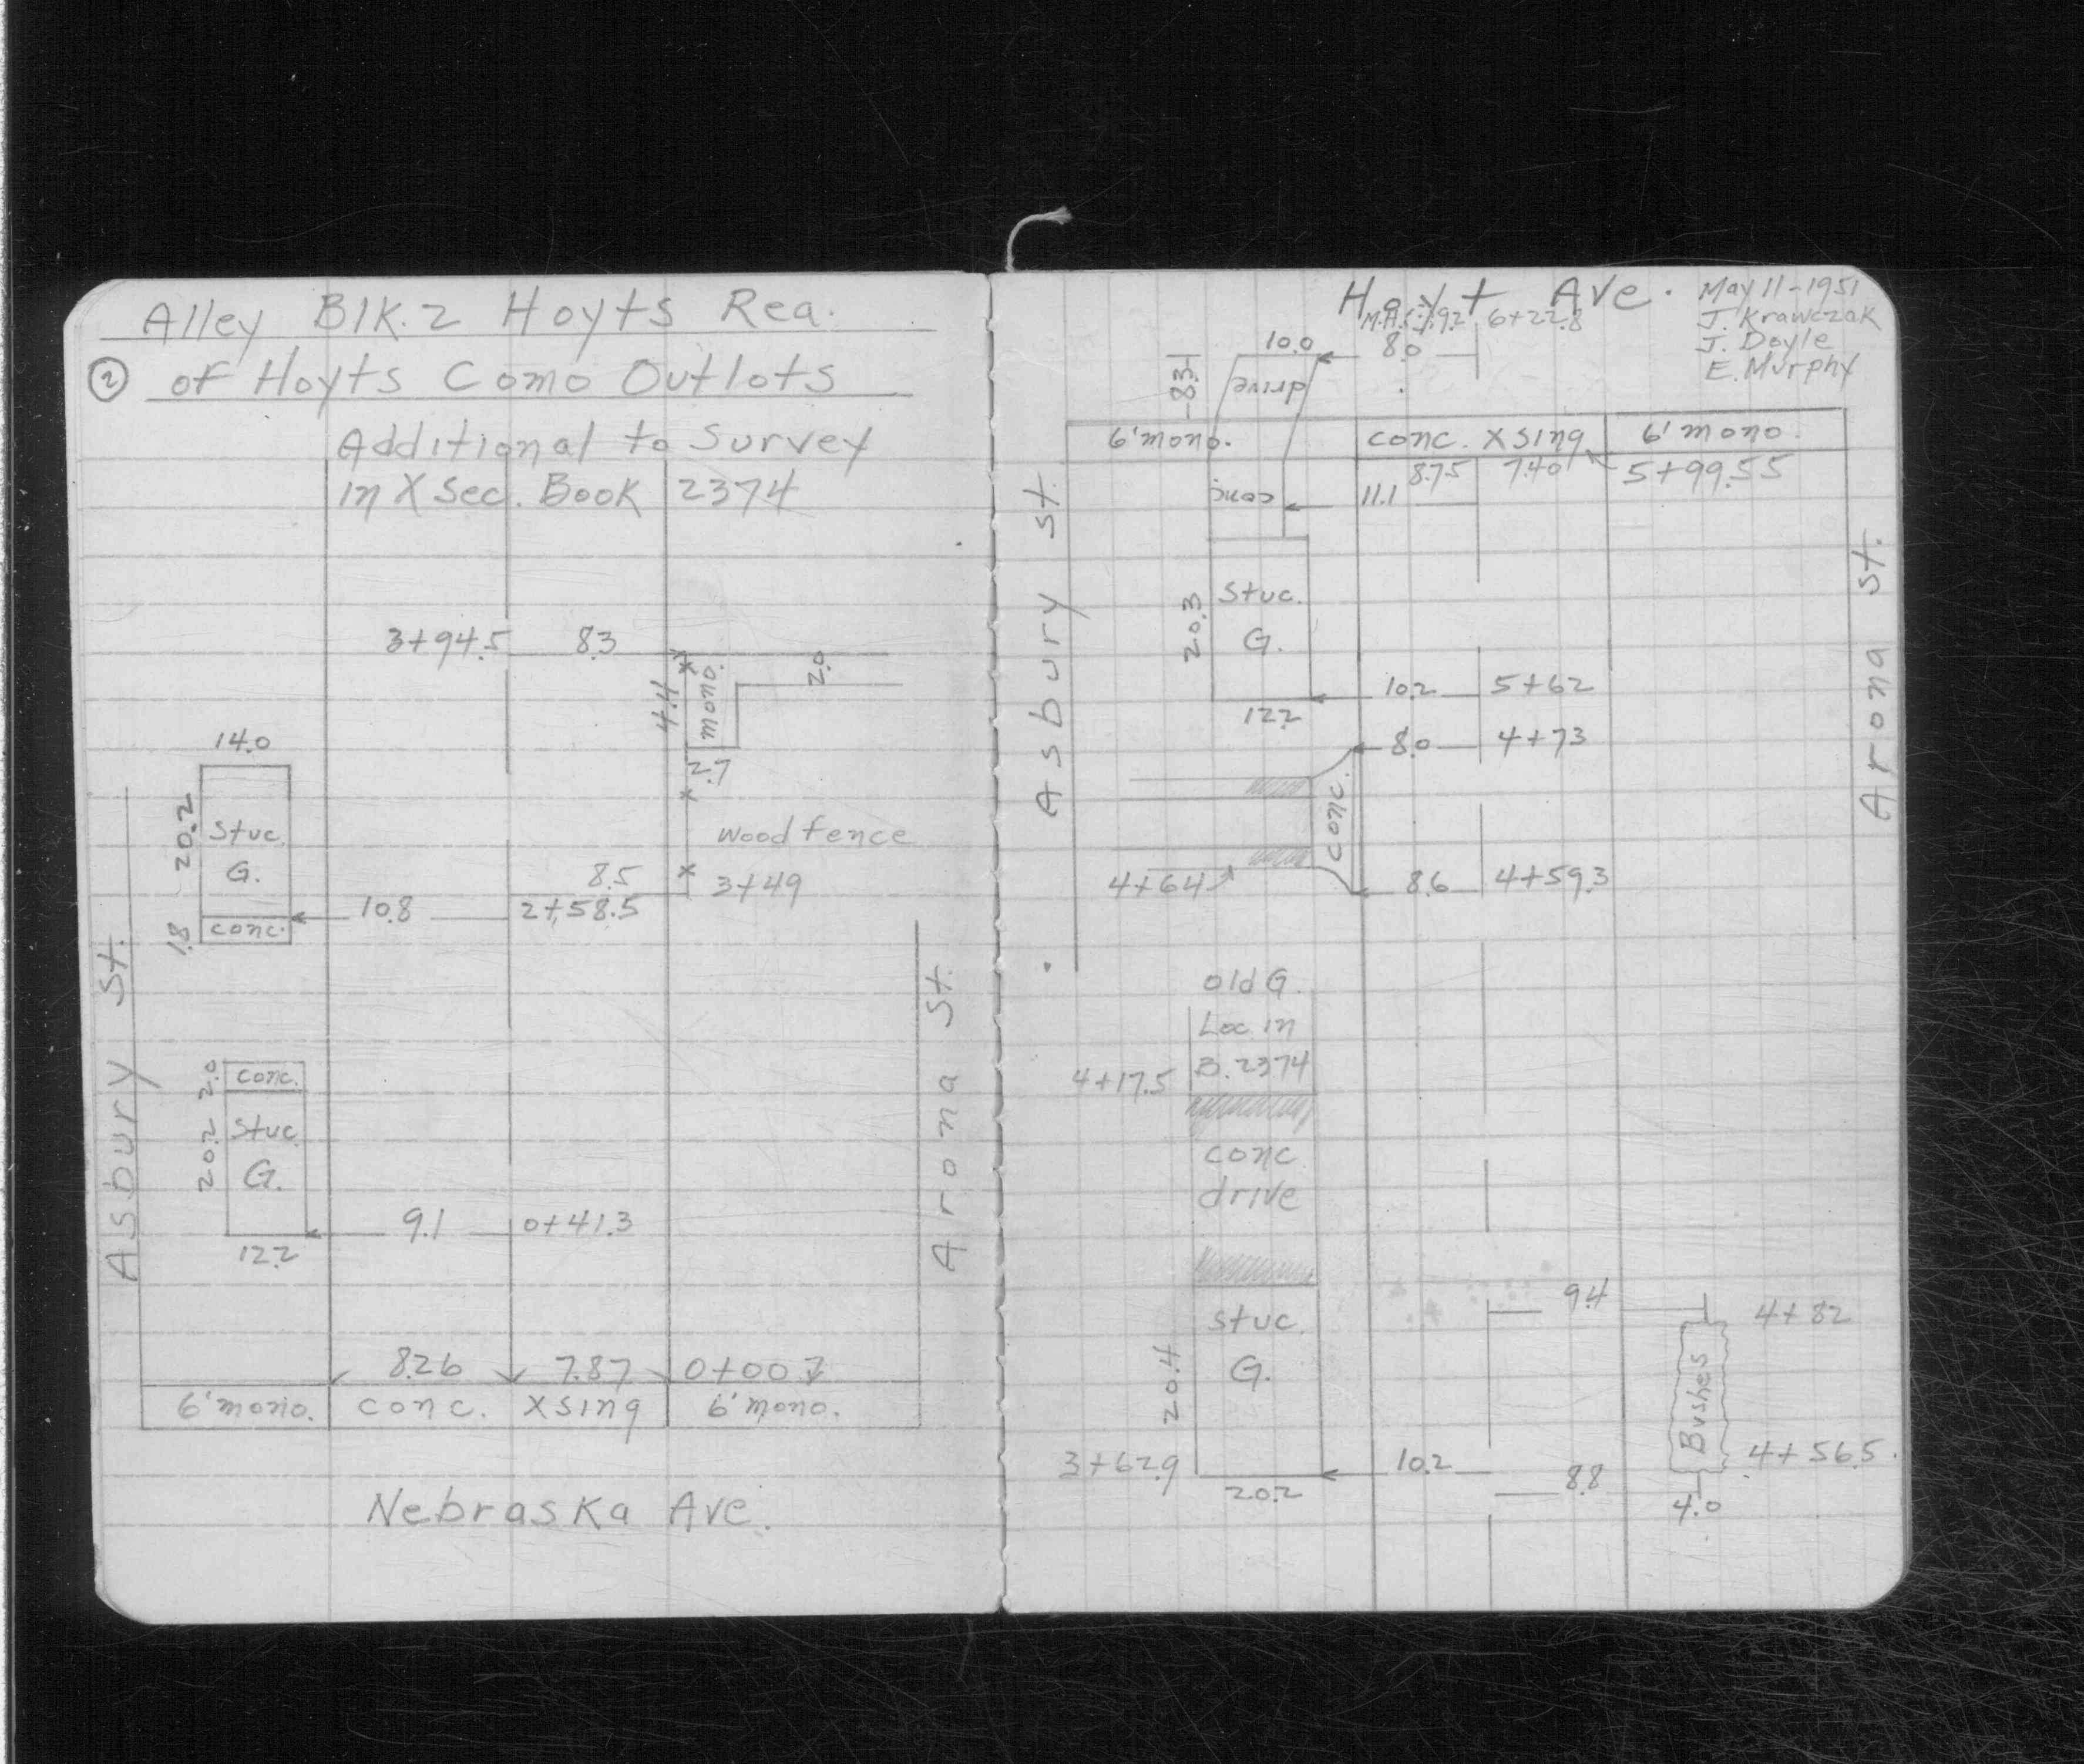 Alley Blk. 2 Hoyts Rea.
② of Hoyts Como Outlots
Additional to Survey
in X Sec. Book 2374
3+94.5 8.3
4.4 mono. 2.0
2.7
14.0
20.2 Stuc. G.
wood fence
8.5 3+49
1.8 conc. 10.8 2+58.5
Asbury St.
Arona St.
2.0 conc.
20.2 Stuc. G.
9.1 0+41.3
12.2
8.26 7.87 0+00.7
6' mono. conc. xsing 6' mono.
Nebraska Ave.
Hoyt Ave.
May 11-1951
J. Krawczak
J. Doyle
E. Murphy
6+22.8
10.0 8.0
83.1 drive
6' mono. conc. xsing 6' mono.
8.75 7.40 5+99.55
conc 11.1
Asbury St.
Arona St.
20.3 Stuc. G.
10.2 5+62
12.2
8.0 4+73
conc.
4+64 8.6 4+59.3
old G.
Loc. in
B. 2374
4+17.5
conc
drive
9.4 4+82
Stuc.
20.4 G.
Bushes
3+62.9 10.2 4+56.5
20.2 8.8 4.0